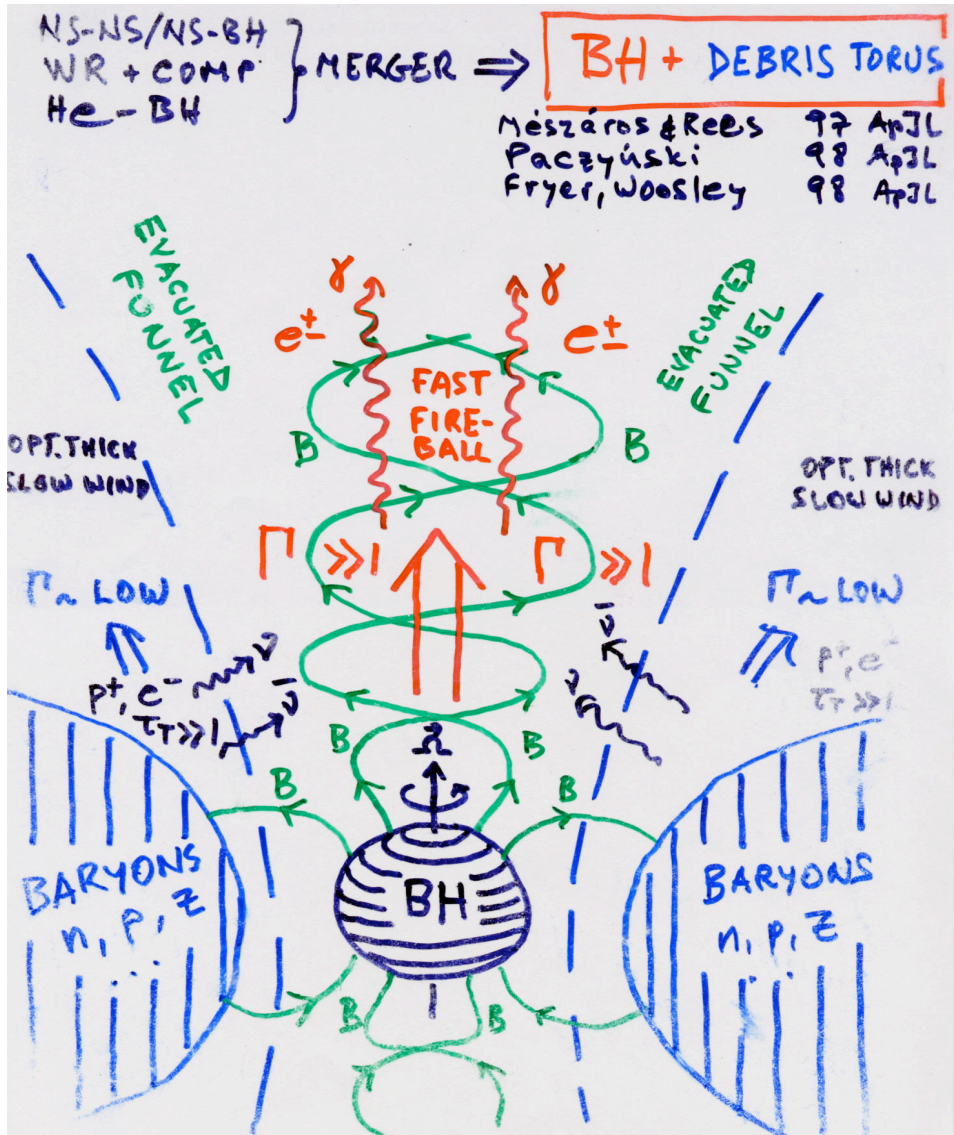 NS-NS/NS-BH
WR + COMP
He-BH
} MERGER ⇒
BH + DEBRIS TORUS
Mészáros & Rees 97 ApJL
Paczyński 98 ApJL
Fryer, Woosley 98 ApJL
EVACUATED
FUNNEL
EVACUATED
FUNNEL
γ
γ
e±
e±
FAST
FIRE-
BALL
B
B
OPT. THICK
SLOW WIND
OPT. THICK
SLOW WIND
Γ ≫1
Γ ≫1
Γ ~ LOW
Γ ~ LOW
p⁺, e⁻
τ_T ≫1
ν
ν̄
ν̄
ν
p⁺, e⁻
τ_T ≫1
B
Ω
B
B
B
BARYONS
n, p, Z
...
BH
BARYONS
n, p, Z
...
B
B